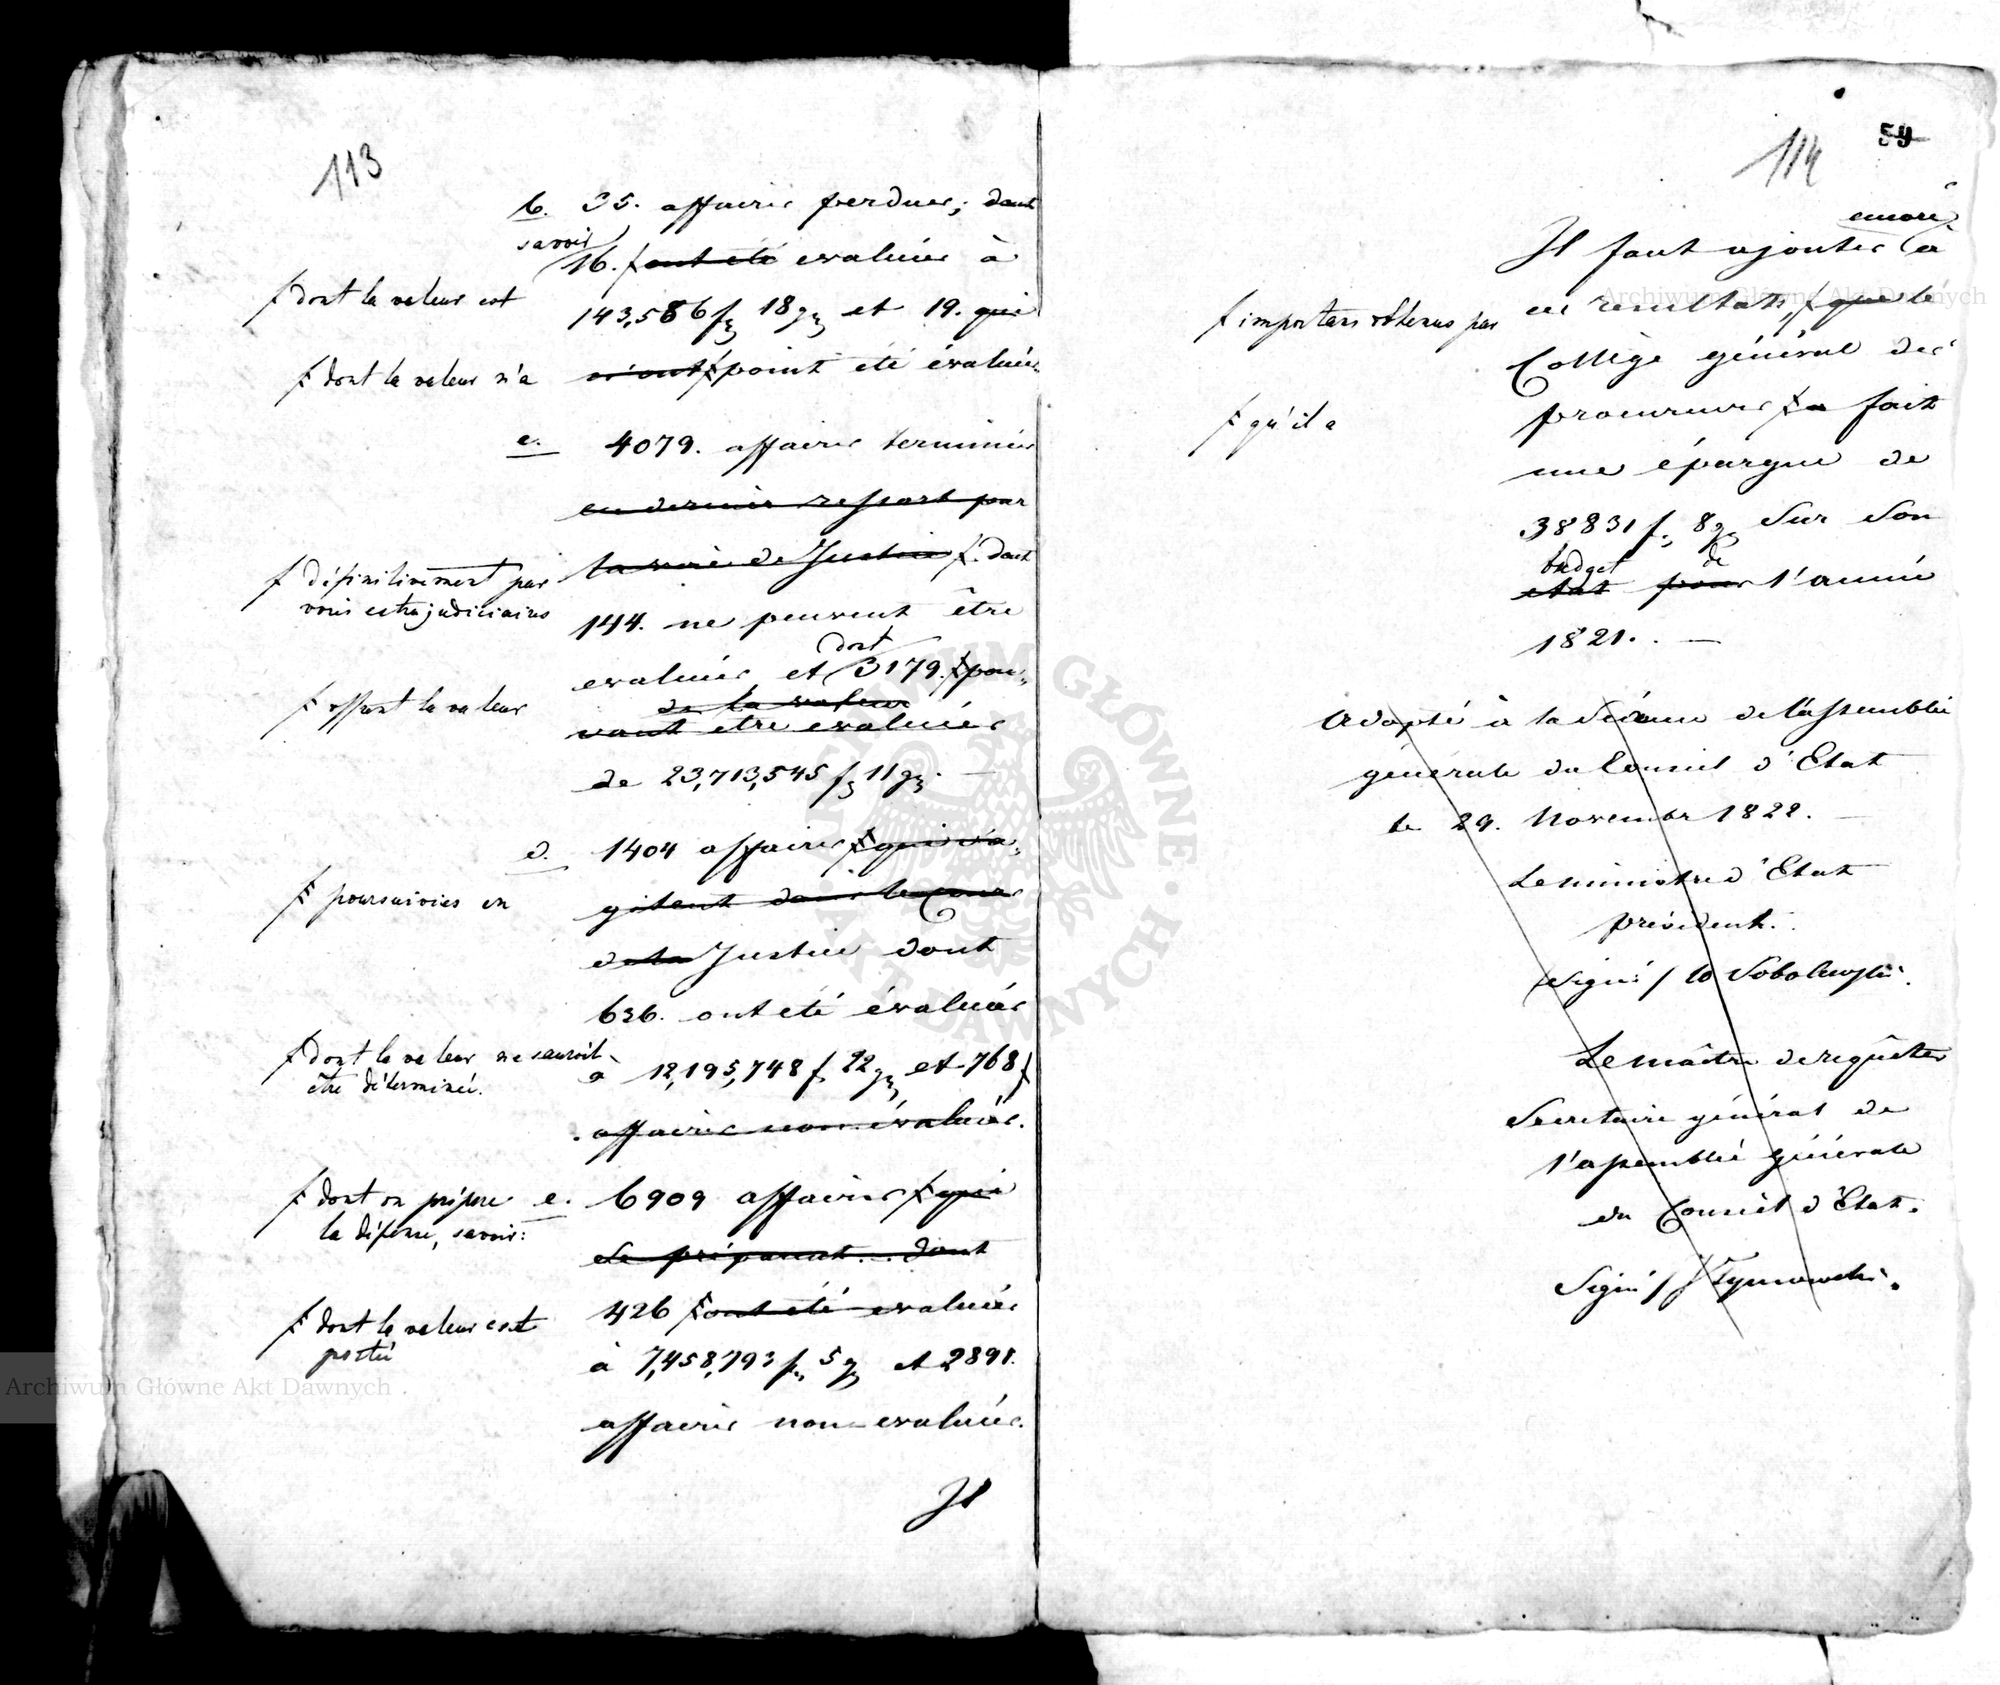 113
b. 35. affaires perdues; dont
savoir
16. ƒ ont été evaluées à
ƒ dont la valeur est
143,586 f. 18 g. et 19. qui
ƒ dont la valeur n'a
n'ont ƒ point été évaluées
c. 4079. affaires terminées
en dernier ressort par
la voie de Justice ƒ. dont
ƒ définitivement par
voies extrajudiciaires
144. ne peuvent être
dont
evaluées et 3179. ƒ pou-
ƒ offrant la valeur
de la valeur
vant etre evaluées
de 23,713,545 f. 11 g. —
d. 1404 affaires ƒ qui s'a-
ƒ poursuivies en
gitent dans le cours
de la Justice dont
636. ont été évaluées
ƒ dont la valeur ne sauroit
être déterminée.
à 12,195,748 f. 22 g. et 768 ƒ
affaires non évaluées.
ƒ dont on prépare
la défense, savoir:
e. 6909 affaires ƒ qui
se préparent. dont
426 ƒ ont été evaluées
ƒ dont la valeur est
portée
à 7,458,793 f. 5 g. et 2891.
affaires non evaluées.
Il
59
114
encore
Il faut ajouter à
ces resultats, ƒ que le
ƒ importans obtenus par
Collège général des
procureurs ƒ a fait
ƒ qu'il a
une épargne de
38831 f. 8 g. sur son
budget de
etat pour l'année
1821. —
Adopté à la séance de l'assemblée
générale du Conseil d'Etat
le 29. Novembre 1822. —
Le ministre d'Etat
président.
signé / Sobolewski.
Le maître de requêtes
Secretaire général de
l'assemblée générale
du Conseil d'Etat.
Signé / J Tymowski.
Archiwum Główne Akt Dawnych
Archiwum Główne Akt Dawnych
ARCHIWUM GŁÓWNE · AKT DAWNYCH ·